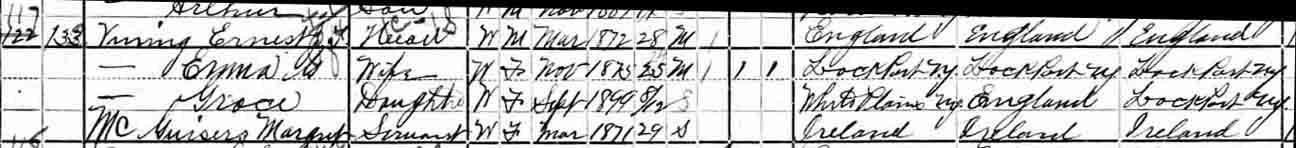 117 Arthur Son W M Nov
122 133 Vining Ernest Head W M Mar 1872 28 M 1 England England England
— Emma Wife W F Nov 1875 25 M 1 1 1 LockPort Ny LockPort Ny LockPort Ny
— Grace Daught W F Sept 1899 8/12 S White Plains Ny England LockPort Ny
Mc Servant W F Mar 1871 29 S Ireland Ireland Ireland